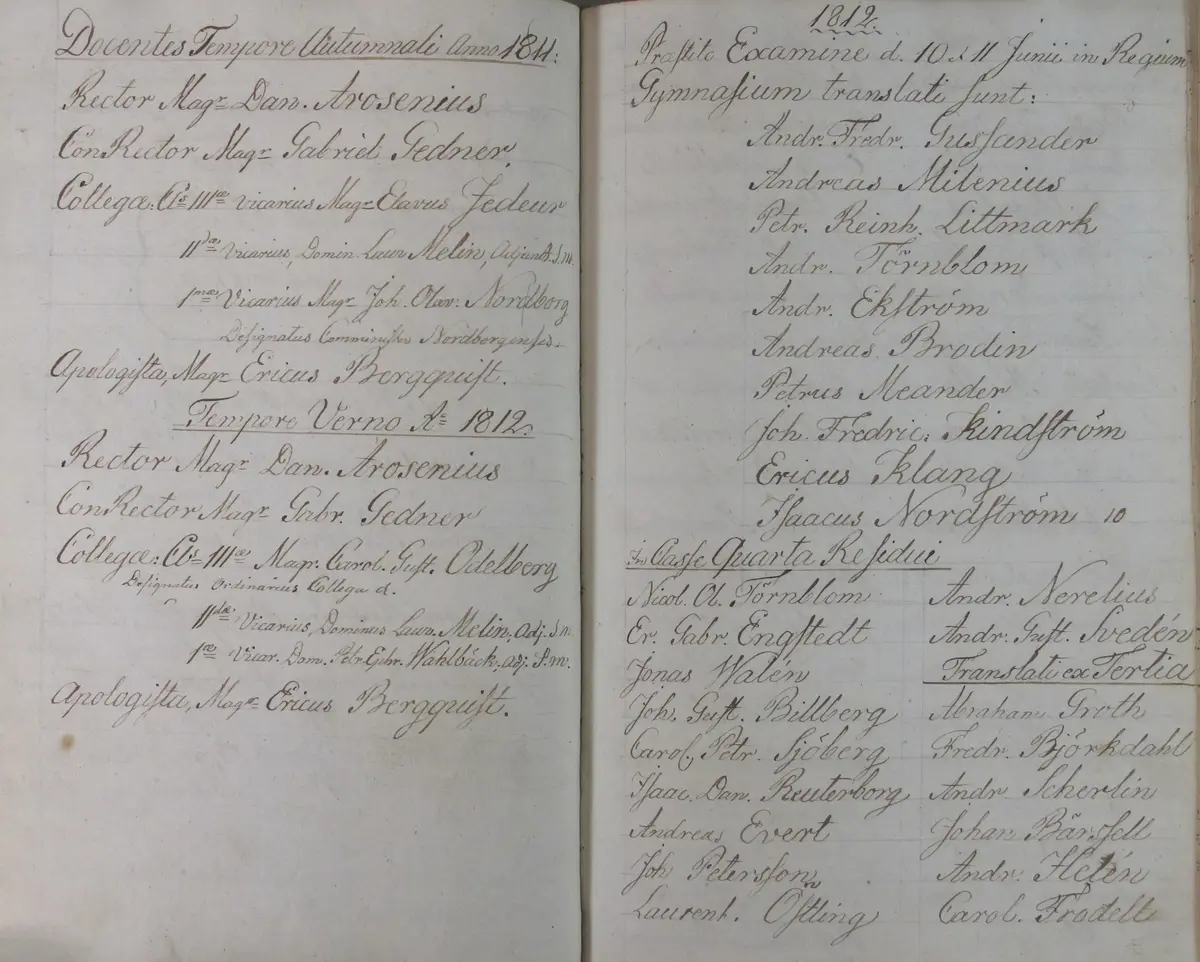 Docentes Tempore Autumnali Anno 1811:
Rector Magr Dan. Arosenius
ConRector Magr Gabriel Gedner.
Collegæ: Cls IIIæ vicarius Magr Olavus Fedeur
IIdæ Vicarius, Domin. Laur Melin, Adjunct. S. m.
1mæ Vicarius Magr Joh. Olav: Nordborg
Designatus Comminister Nordbergensis.
Apologista, Magr Ericus Bergquist.
Tempore Verno Ao 1812.
Rector Magr Dan. Arosenius
ConRector Magr Gabr. Gedner
Collegæ: Cls IIIæ Magr. Carol. Gust. Odelberg
Designatus Ordinarius Collega d.
IIdæ Vicarius, Dominus Laur. Melin, Adj. S. m
1æ Vicar. Dom. Petr. Ephr. Wahlbäck, adj. S. m.
Apologista, Magr Ericus Bergquist.
1812.
Præstito Examine d. 10 & 11 Junii in Regium
Gymnasium translati sunt:
Andr. Fredr. Gussander
Andreas Milenius
Petr. Reinh. Littmark
Andr. Törnblom
Andr. Ekström
Andreas Brodin
Petrus Meander
Joh. Fredric: Kindström
Ericus Klang
Isaacus Nordström 10
In Classe Quarta Residui
Nicol. Ol. Törnblom
Er. Gabr. Engstedt
Jonas Walén
Joh. Gust. Billberg
Carol. Petr. Sjöberg
Isaac. Dan. Reuterborg
Andreas Evert
Joh Petersson
Laurent. Östling
Andr. Nerelius
Andr. Gust. Svedén
Translati ex Tertia
Abraham Groth
Fredr. Björkdahl
Andr Scherlin
Johan Bärsell
Andr. Helén
Carol. Frodell